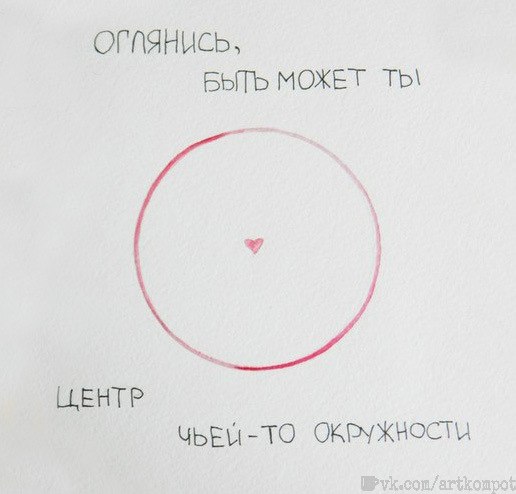 ОГЛЯНИСЬ,
БЫТЬ МОЖЕТ ТЫ
ЦЕНТР
ЧЬЕЙ-ТО ОКРУЖНОСТИ
vk.com/artkompot